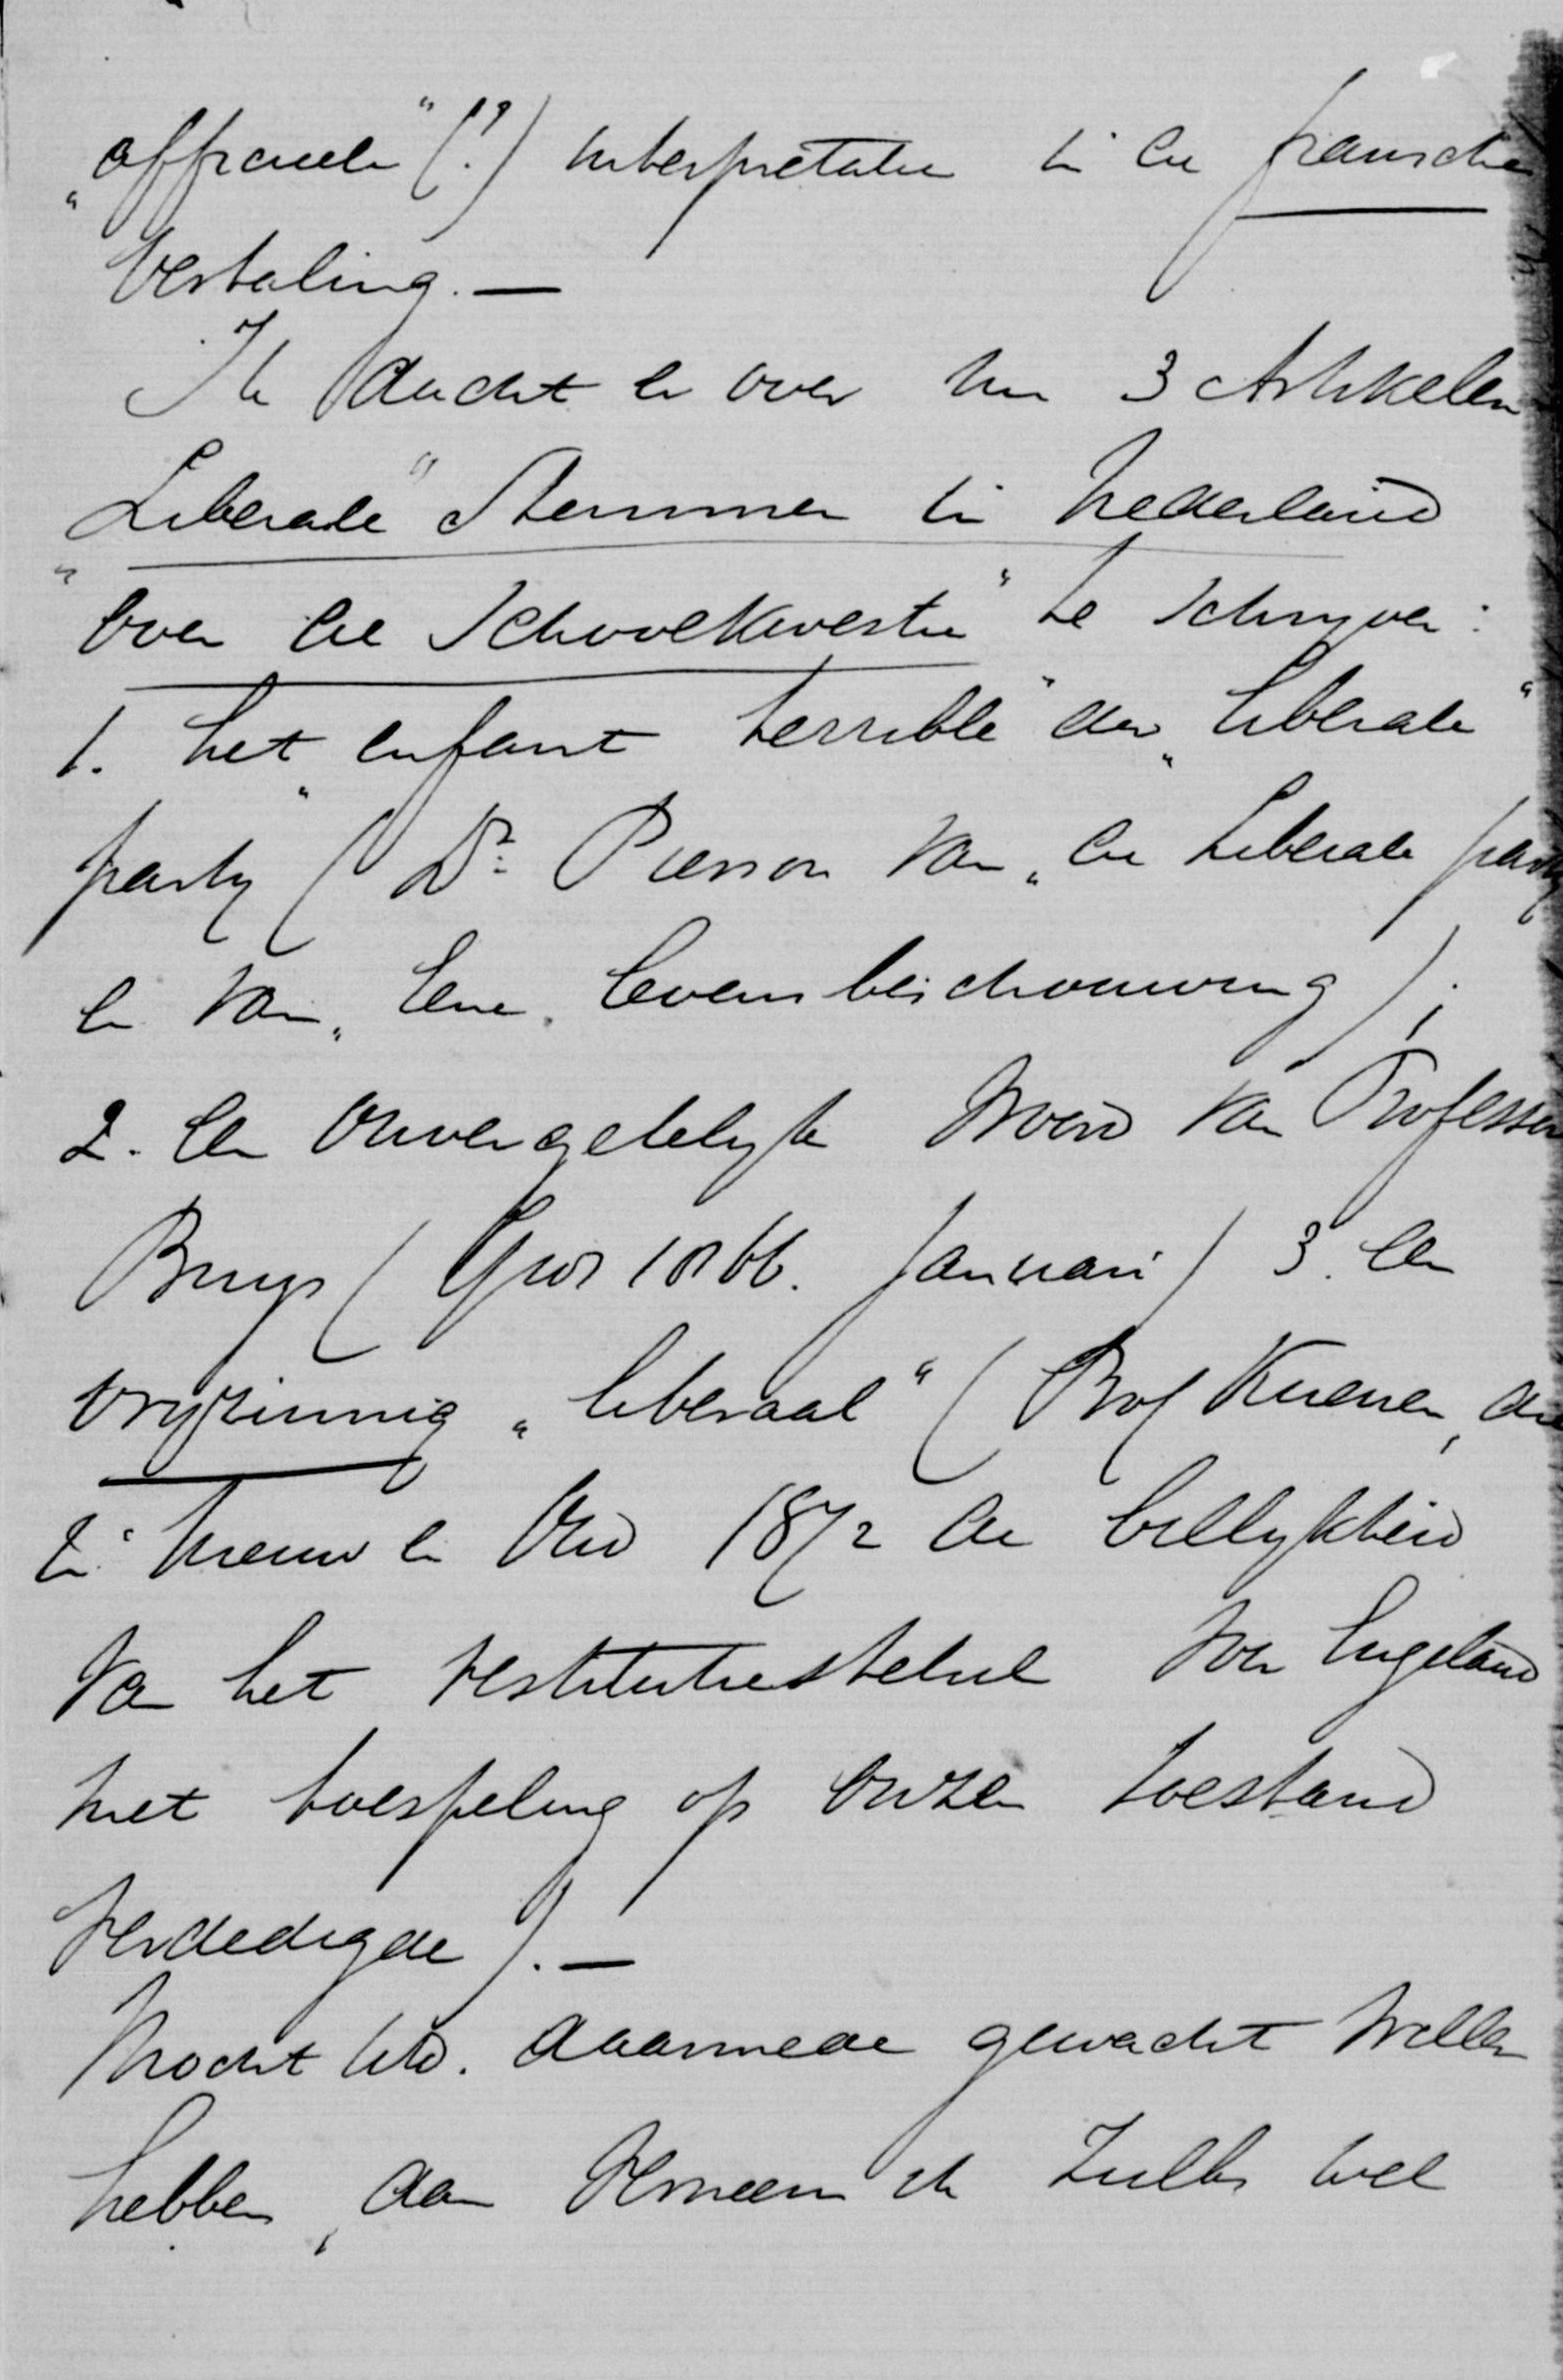 „officieele" (!?) interpretatie in de fransche
vertaling. —
Ik dacht er over om 3 Artikelen
„Liberale" Stemmen in Nederland
over de Schoolkwestie" te schryven:
1. het „enfant terrible" der „liberale"
party (Dr. Pierson van „de Liberale party
en van „Eene levensbeschouwing);
2. Een onvergetelyk woord van Professor
Buys (Gids 1866. Januari) 3. Een
vryzinnig „liberaal" (Prof Kuenen, die
in Nieuw en Oud 1872 de billykheid
van het restitutiestelsel voor Engeland
met toespeling op onzen toestand
verdedigde). —
Mocht UEd. daarmede gewacht willen
hebben, dan verneem ik zulks wel